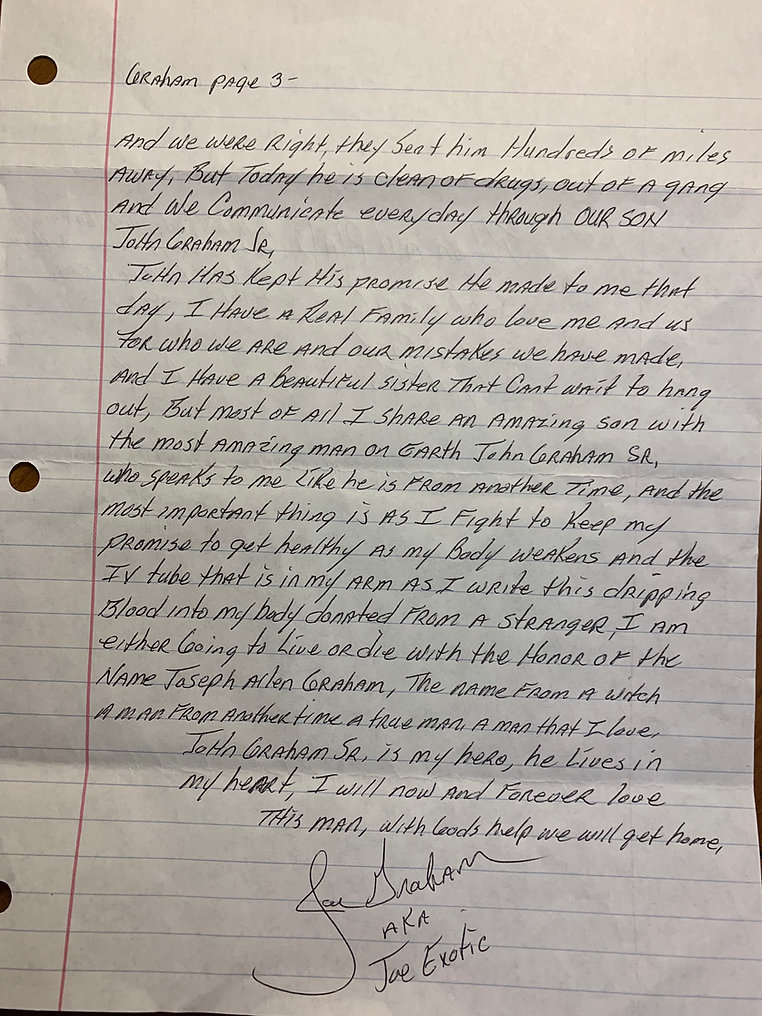 GRAHAM PAGE 3-
And we were Right, they Sent him Hundreds of miles
AWAY, But Today he is clean of drugs, out of A gang
And We Communicate everyday through OUR SON
John Graham Sr,
John Has Kept His promise He made to me that
day, I Have a Real Family who love me and us
For who we are and our mistakes we have made,
And I Have a Beautiful sister That Cant wait to hang
out, But most of All I share an amazing son with
the most amazing man on Earth John Graham SR,
who speaks to me Like he is From another Time, And the
most important thing is As I Fight to Keep my
promise to get healthy As my Body weakens And the
IV tube that is in my ARM As I write this dripping
Blood into my body donated From a stranger, I am
either Going to Live or die with the Honor of the
Name Joseph Allen Graham, The name From a witch
a man From Another time a true man, a man that I love,
John Graham Sr, is my hero, he Lives in
my heart, I will now and Forever love
This man, with Gods help we will get home,
Joe Graham
AKA
Joe Exotic